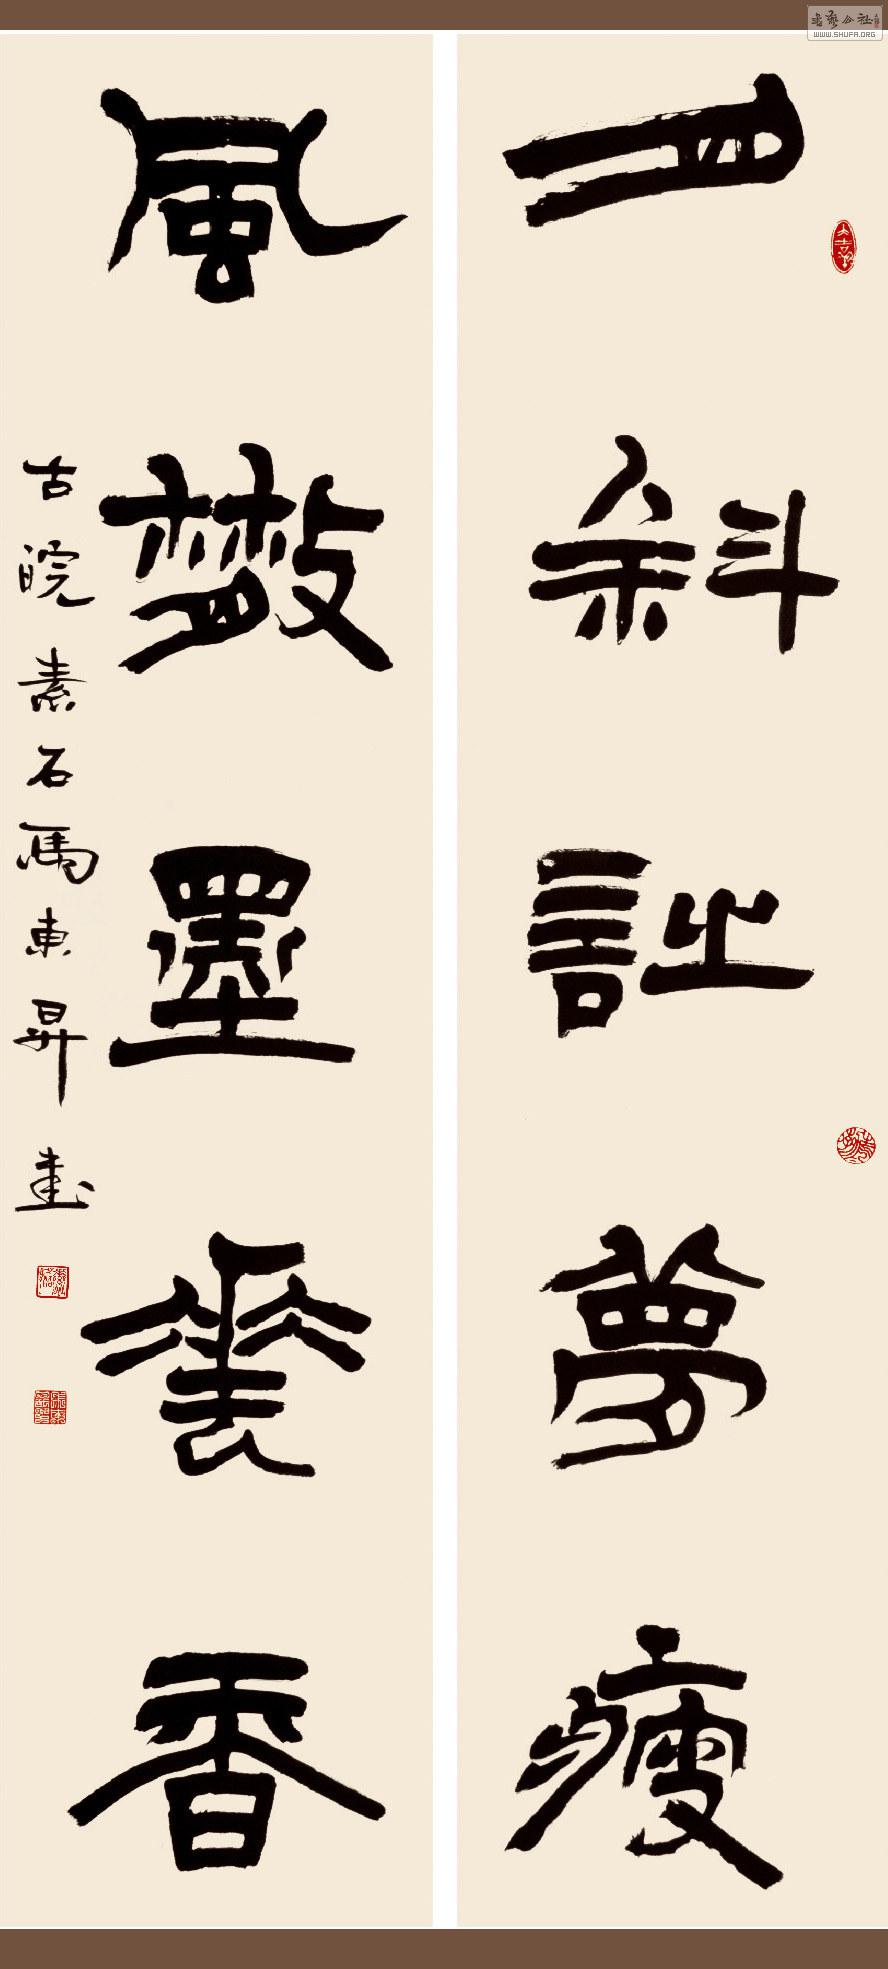 月斜詩夢瘦
風散墨花香
古皖素石馬東昇書
書藝公社
WWW.SHUFA.ORG